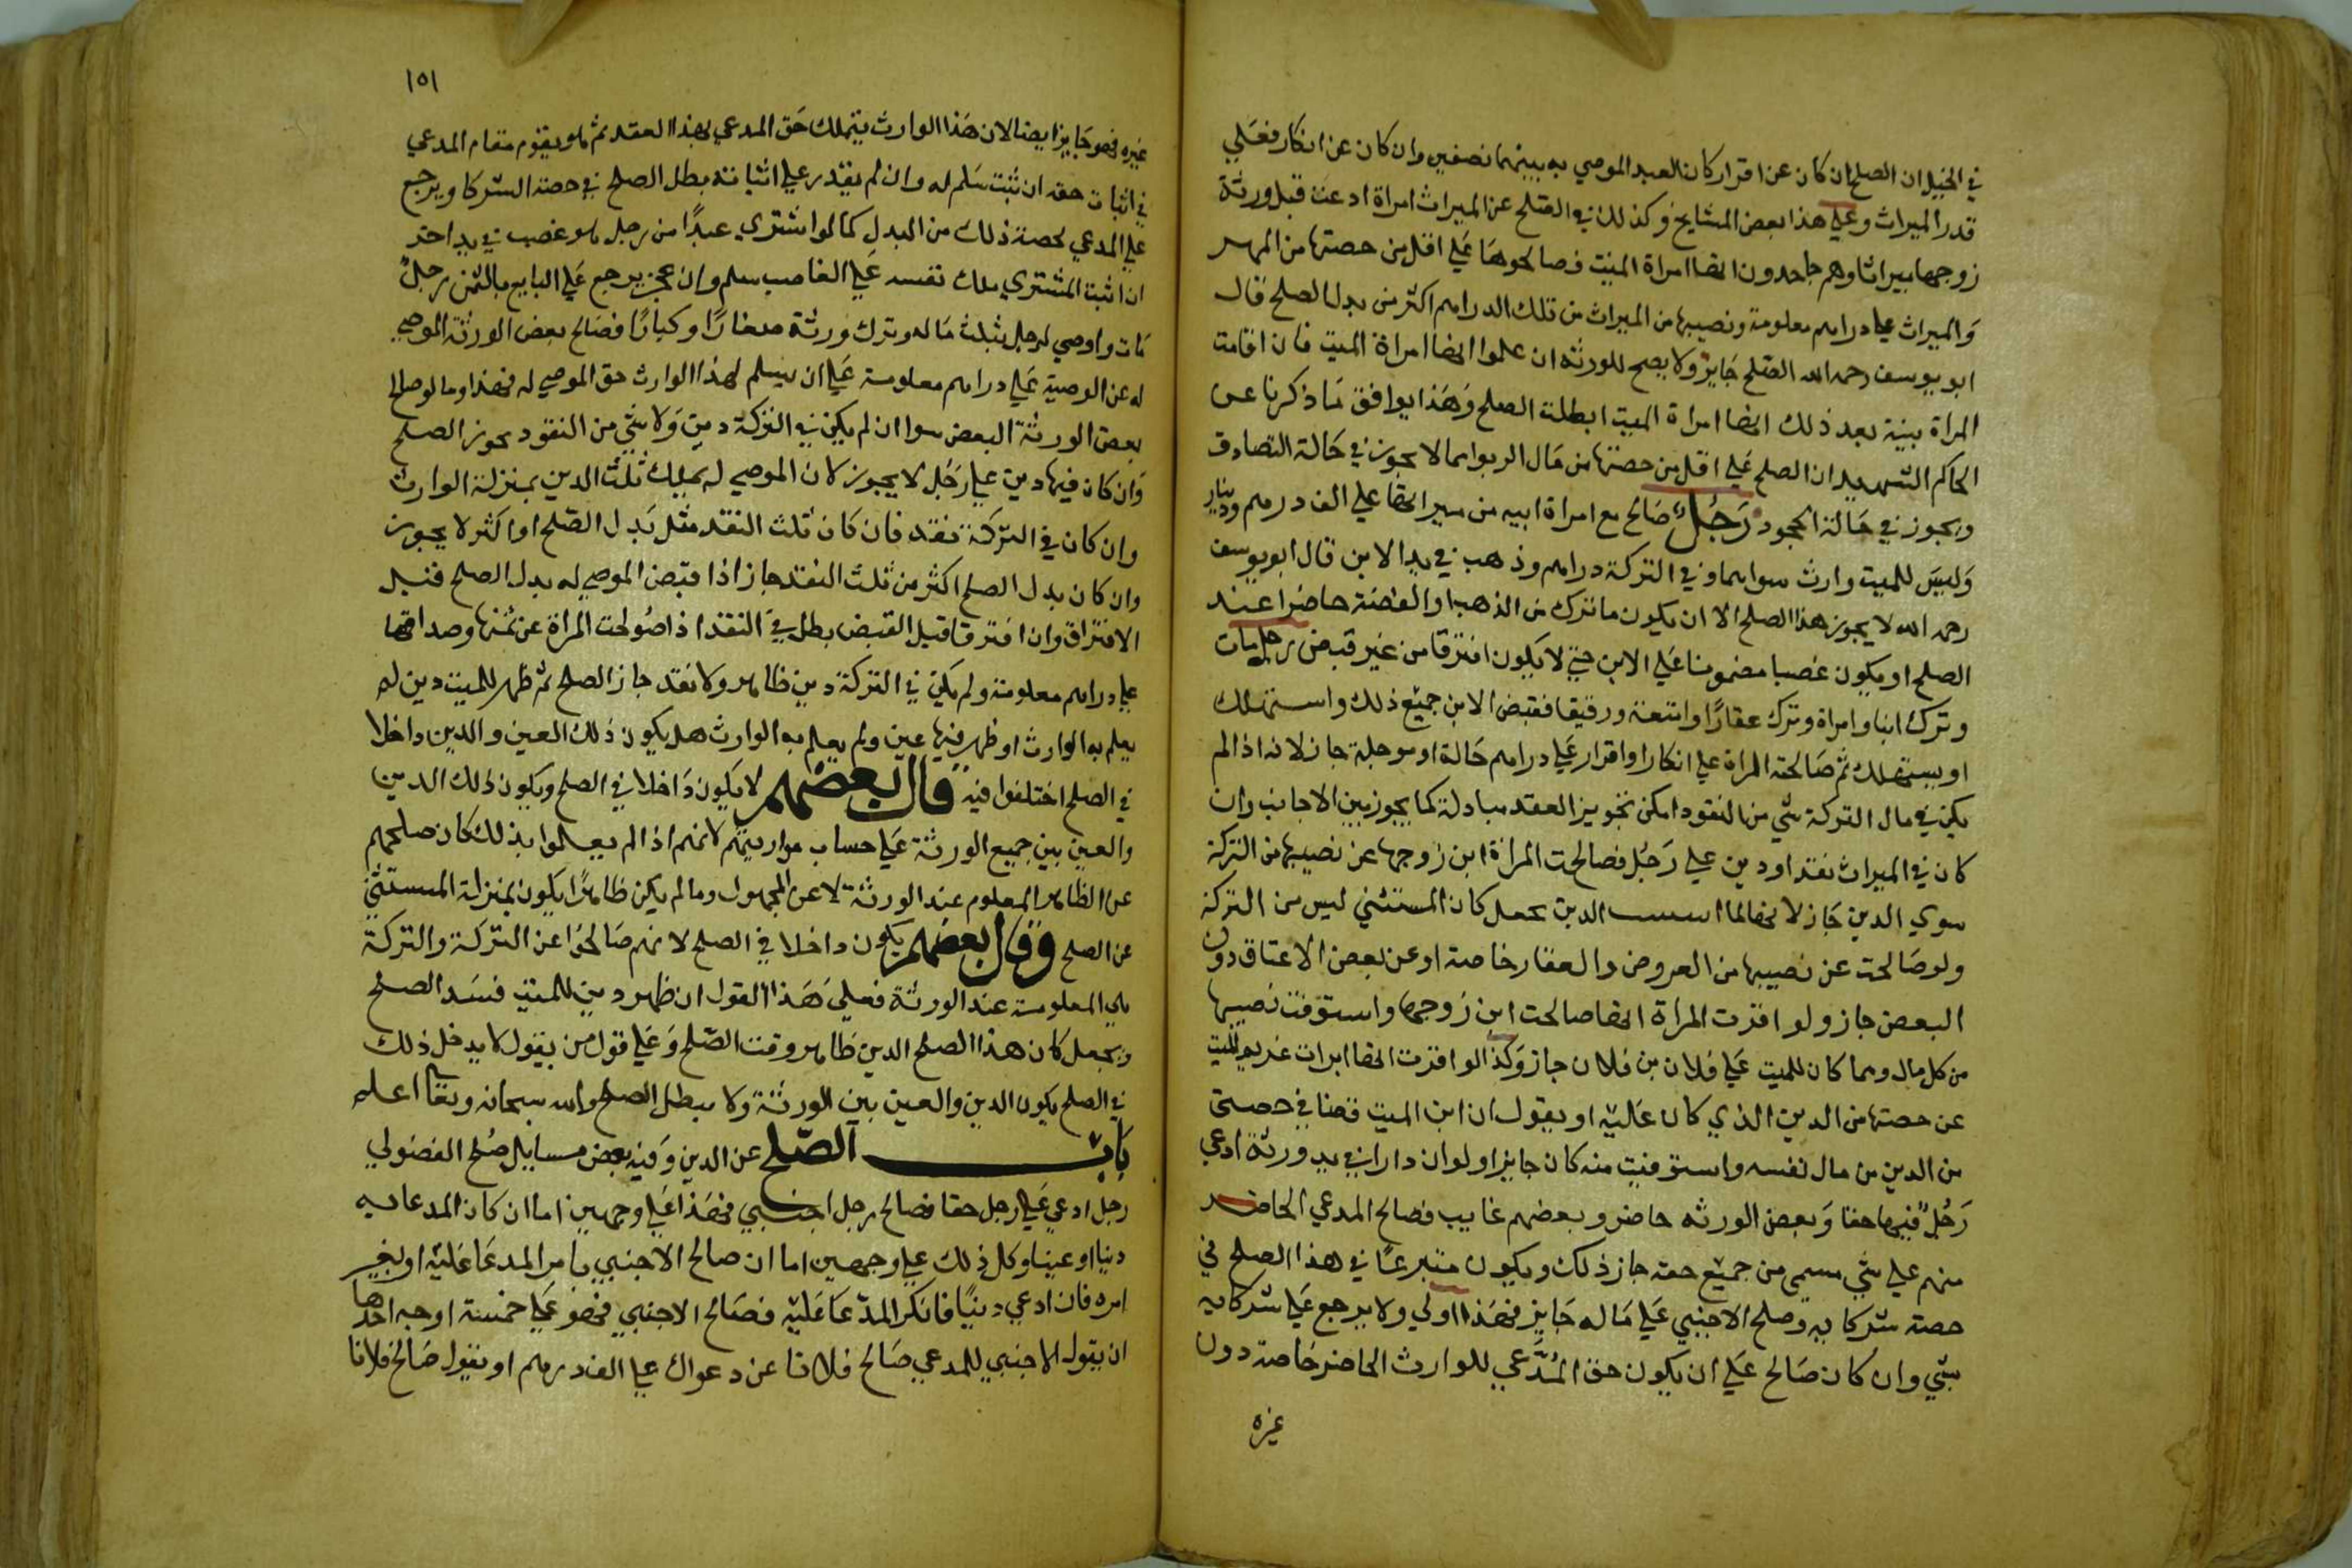 في الحيل ان الصلح ان كان عن اقرار كان العبد الموصي به بينهما نصفين وان كان عن انكار فعلي
قدر الميراث وعلي هذا بعض المشايخ وكذلك في الصلح عن الميراث امراة ادعت قبل ورثة
زوجها ميراثا وهم جاحدون انها امراة الميت فصالحوها علي اقل من حصتها من المهر
والميراث علي دراهم معلومة ونصيبها من الميراث من تلك الدراهم اكثر من بدل الصلح قال
ابو يوسف رحمه الله الصلح جايز ولا يصح للورثه ان علموا انها امراة الميت فان اقامت
المراة بينة بعد ذلك انها امراة الميت ابطلت الصلح وهذا يوافق ما ذكرنا عن
الحاكم الشهيد ان الصلح علي اقل من حصتها من مال الربوا انما لا يجوز في حالة التصادق
ويجوز في حالة الجحود رجل صالح مع امراة ابيه من ميراثها علي الف درهم ودينار
وليس للميت وارث سواهما وفي التركة دراهم وذهب في يد الابن قال ابو يوسف
رحمه الله لا يجوز هذا الصلح الا ان يكون ما ترك من الذهب والفضة حاضرا عند
الصلح او يكون غصبا مضمونا علي الابن حتي لا يكون افترقا من غير قبض رجل مات
وترك ابنا وامراة وترك عقارا وامتعة ورقيقا فقبض الابن جميع ذلك واستهلك
او يستهلك ثم صالحته المراة علي انكار او اقرار علي دراهم حالة او موجلة جاز لانه اذا لم
يكن في مال التركة شي من النقود امكن تجويز العقد مبادلة كما يجوز بين الاجانب وان
كان في الميراث نقد او دين علي رجل فصالحت المراة ابن زوجها عن نصيبها من التركة
سوي الدين جاز لانها لما الدين يجعل كان المستثني ليس من التركة
ولو صالحت عن نصيبها من العروض والعقار خاصة او عن بعض الاعتاق دون
البعض جاز ولو اقرت المراة انها صالحت ابن زوجها واستوفت نصيبها
من كل مال ومما كان للميت علي فلان بن فلان جاز وكذا لو اقرت انها ابرات غريم الميت
عن حصتها من الدين الذي كان عليه او يقول ان ابن الميت قضاني حصتي
من الدين من مال نفسه واستوفيت منه كان جايزا ولو ان دارا في يد ورثة ادعي
رجل فيها حقا وبعض الورثه حاضر وبعضهم غايب فصالح المدعي الحاضر
منهم علي شي مسمي من جميع حقه جاز ذلك ويكون متبرعا في هذا الصلح في
حصة شركايه وصلح الاجنبي علي ماله جايز فهذا اولي ولا يرجع علي شركايه
بشي وان كان صالح علي ان يكون حق المدعي للوارث الحاضر خاصة دون
غيره
١٥١
غيره فهو جايز ايضا لان هذا الوارث يتملك حق المدعي بهذا العقد ثم هو يقوم مقام المدعي
في اثبات حقه ان ثبت سلم له وان لم يقدر علي اثباته بطل الصلح في حصة الشركا ويرجع
علي المدعي بحصة ذلك من البدل كما لو اشتري عبدا من رجل هو غصب في يد اخر
ان اثبت المشتري ملك نفسه علي الغاصب سلم وان عجز يرجع علي البايع بالثمن رجل
مات واوصي لرجل بثلث ماله وترك ورثة صغارا وكبارا فصالح بعض الورثة الموصي
له عن الوصية علي دراهم معلومة علي ان يسلم لهذا الوارث حق الموصي له فهذا وما لو صالح
بعض الورثة البعض سوا ان لم يكن في التركة دين ولا شي من النقود يجوز الصلح
وان كان فيها دين علي رجل لا يجوز لان الموصي له يملك ثلث الدين بمنزلة الوارث
وان كان في التركة نقد فان كان ثلث النقد مثل بدل الصلح او اكثر لا يجوز
وان كان بدل الصلح اكثر من ثلث النقد جاز اذا قبض الموصي له بدل الصلح قبل
الافتراق وان افترقا قبل القبض بطل في النقد اذا صولحت المراة عن ثمنها وصداقها
علي دراهم معلومة ولم يكن في التركة دين ظاهر ولا نقد جاز الصلح ثم ظهر للميت دين لم
يعلم به الوارث او ظهر فيها عين ولم يعلم به الوارث هل يكون ذلك العين والدين داخلا
في الصلح اختلفوا فيه قال بعضهم لا يكون داخلا في الصلح ويكون ذلك الدين
والعين بين جميع الورثة علي حساب مواريثهم لانهم اذا لم يعلموا بذلك كان صلحهم
عن الظاهر المعلوم عند الورثة لا عن المجهول وما لم يكن ظاهرا يكون بمنزلة المستثني
عن الصلح وقال بعضهم يكون داخلا في الصلح لانهم صالحوا عن التركة والتركة
هي المعلومة عند الورثة فعلي هذا القول ان ظهر دين للميت فسد الصلح
ويجعل كان هذا الصلح الدين ظاهر وقت الصلح وعلي قول من يقول لا يدخل ذلك
في الصلح يكون الدين والعين بين الورثة ولا يبطل الصلح والله سبحانه وتعالي اعلم
باب الصلح عن الدين وفيه بعض مسايل صلح الفضولي
رجل ادعي علي رجل حقا فصالح رجل اجنبي فهذا علي وجهين اما ان كان المدعا به
دينا او عينا وكل ذلك علي وجهين اما ان صالح الاجنبي بامر المدعا عليه او بغير
امره فان ادعي دينا فانكر المدعا عليه فصالح الاجنبي فهو علي خمسة اوجه احدها
ان يقول الاجنبي للمدعي صالح فلانا عن دعواك علي الف درهم او يقول صالح فلانا